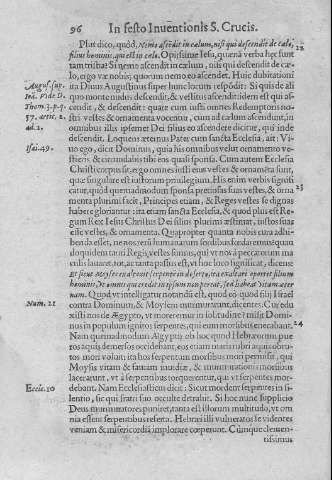 96 In festo Inuentionis S. Crucis.
Plut dico, quòd, Nemo ascendit in cælum, nisi qui descendit de cælo, 22
filius hominis, qui est in cælo. Opitulare Iesu, quænã verba hęc sunt
tam tristia? Si nemo ascendit in cælum, nisi qui descendit de cæ-
lo, ergo væ nobis, quorum nemo eo ascendet. Huic dubitationi
August. sup. ita Diuus Augustinus super hunc locum respõdit: Si quis de ali
Ioã. Vide D. quo monte nudus descendit, & vestitus ascendit idem est qui as-
Thom. 3. p. q. cendit, & descendit: quare cum iusti omnes Redemptoris no-
57. artic. 2. stri vestes & ornamenta vocentur, cum ad cælum ascendunt, in
ad. 2. omnibus illis ipsemet Dei filius eo ascendere dicitur, qui inde
descendit. Loquens æternus Pater cum sancta Ecclesia, ait: Vi-
Isai. 49. uo ego, dicit Dominus, quia his omnibus velut ornamento ve-
stieris: & circundabis tibi eos quasi sponsa. Cum autem Ecclesia
Christi corpus sit, ergo omnes iusti eius vestes & ornamenta sunt,
quæ singulare est iustorum priuilegium. His enim verbis signifi-
catur, quòd quemadmodum sponsa pretiosas suas vestes, & orna 23
menta plurimi facit, Principes etiam, & Reges vestes se dignas
habere gloriantur: ita etiam sancta Ecclesia, & quod plus est Re-
gum Rex Iesus Christus Dei filius plurimi æstimat, iustos suas
esse vestes, & ornamenta. Quapropter quanta nobis cura adhi-
benda esset, ne nos rerũ humanarum sordibus fœdaremus: quan
doquidem tanti Regis, vestes sumus, qui vt nos à peccatorum ma
culis lauaret, tot, ac tanta passus est, vt hoc loco significat, dicens:
Et sicut Moyses exaltauit serpentem in deserto, ita exaltari oportet filium
hominis, vt omnis qui credit in ipsum non pereat, sed habeat vitam æter
nam. Quod vt intelligatur notandũ est, quod eò quòd filij Israel
Num. 21 contra Dominum, & Moysem murmurarunt, dicentes: Cur edu
xisti nos de Ægypto, vt moreremur in solitudine? misit Domi-
nus in populum ignitos serpentes, qui eum morsibus enecabant. 24
Nam quemadmodum Ægyptij ob hoc quod Hebræorum pue-
ros aquis demersos occidebant, eos etiam mari rubri aquis obru-
tos mori voluit ita hos serpentum morsibus mori permisit, qui
Moysis vitam & famam inuidiæ, & murmurationis morsibus
lacerarunt, vt à serpentibus torquerentur, qui vt serpentes mor-
Eccle. 10 debant. Nam Ecclesiastem dicit: Sicut mordent serpentes in si-
lentio, sic qui fratri suo occultè detrahit. Si hoc nunc supplicio
Deus murmuratores puniret, tanta est illorum multitudo, vt om
nia essent serpentibus referta. Hebræi illi vulneratos se videntes
veniam & misericordiã implorare cœperunt. Cũmque clemen-
tissimus